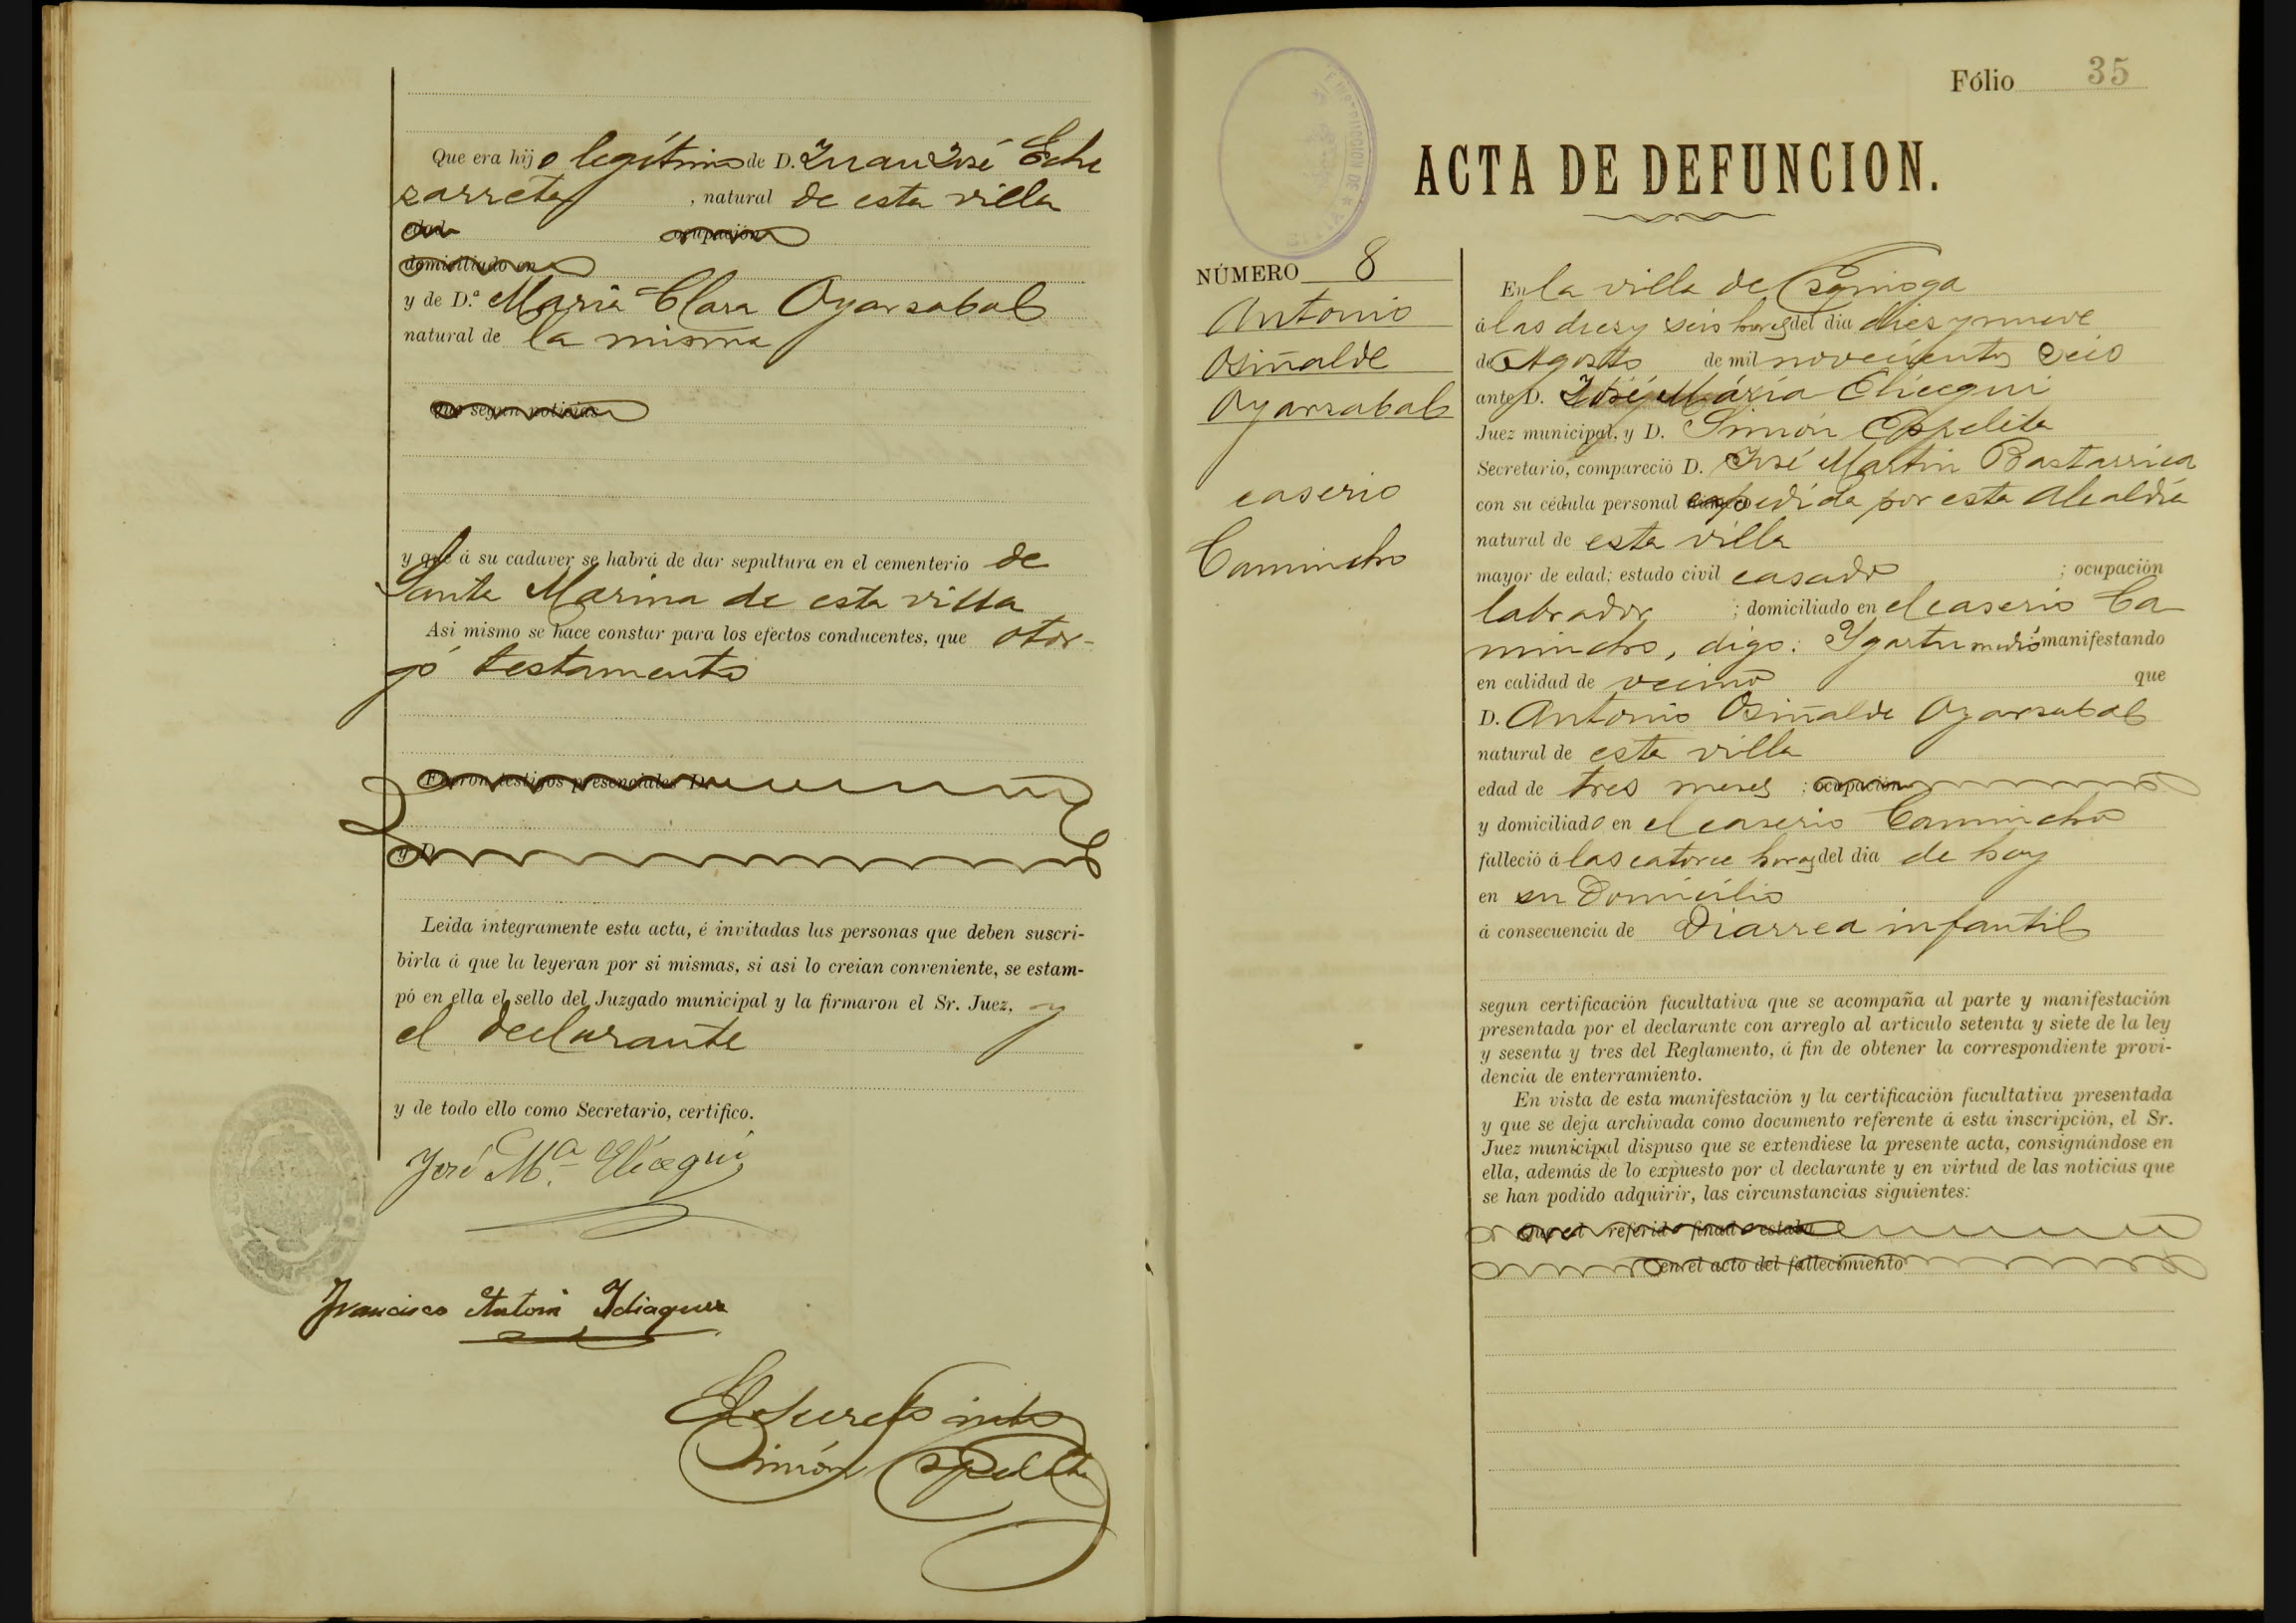 Que era hijo legítimo de D. Juan José Eche
zarreta, natural de esta villa
edad ocupación
domiciliado en
y de D.ª María Clara Oyarzabal
natural de la misma
que segun noticias
y que á su cadaver se habrá de dar sepultura en el cementerio de
Santa Marina de esta villa
Asi mismo se hace constar para los efectos conducentes, que otor-
gó testamento
Fueron testigos presenciales D.
y D.
Leida íntegramente esta acta, é invitadas las personas que deben suscri-
birla á que la leyeran por si mismas, si asi lo creian conveniente, se estam-
pó en ella el sello del Juzgado municipal y la firmaron el Sr. Juez, y
el declarante
y de todo ello como Secretario, certifico.
José M.ª Elicegui
Francisco Antonio Idiaquez
Simón Espelita
Fólio 35
ACTA DE DEFUNCION.
NÚMERO 8
Antonio
Osiñalde
Oyarzabal
caserio
Camincho
En la villa de
á las diez y seis horas del dia diez y nueve
de Agosto de mil novecientos seis
ante D. José María Elicegui
Juez municipal, y D. Simón Espelita
Secretario, compareció D. José Martin Bastarrica
con su cédula personal expedida por esta Alcaldía
natural de esta villa
mayor de edad; estado civil casado; ocupación
labrador; domiciliado en el caserio Ca
mincho, digo: Ygartu medio manifestando
en calidad de vecino que
D. Antonio Osiñalde Oyarzabal
natural de esta villa
edad de tres meses; ocupación
y domiciliado en el caserio Camincho
falleció á las catorce horas del dia de hoy
en su Domicilio
á consecuencia de Diarrea infantil
segun certificación facultativa que se acompaña al parte y manifestación
presentada por el declarante con arreglo al artículo setenta y siete de la ley
y sesenta y tres del Reglamento, á fin de obtener la correspondiente provi-
dencia de enterramiento.
En vista de esta manifestación y la certificación facultativa presentada
y que se deja archivada como documento referente á esta inscripción, el Sr.
Juez municipal dispuso que se extendiese la presente acta, consignándose en
ella, además de lo expuesto por el declarante y en virtud de las noticias que
se han podido adquirir, las circunstancias siguientes:
Que el referido finado estaba
en el acto del fallecimiento